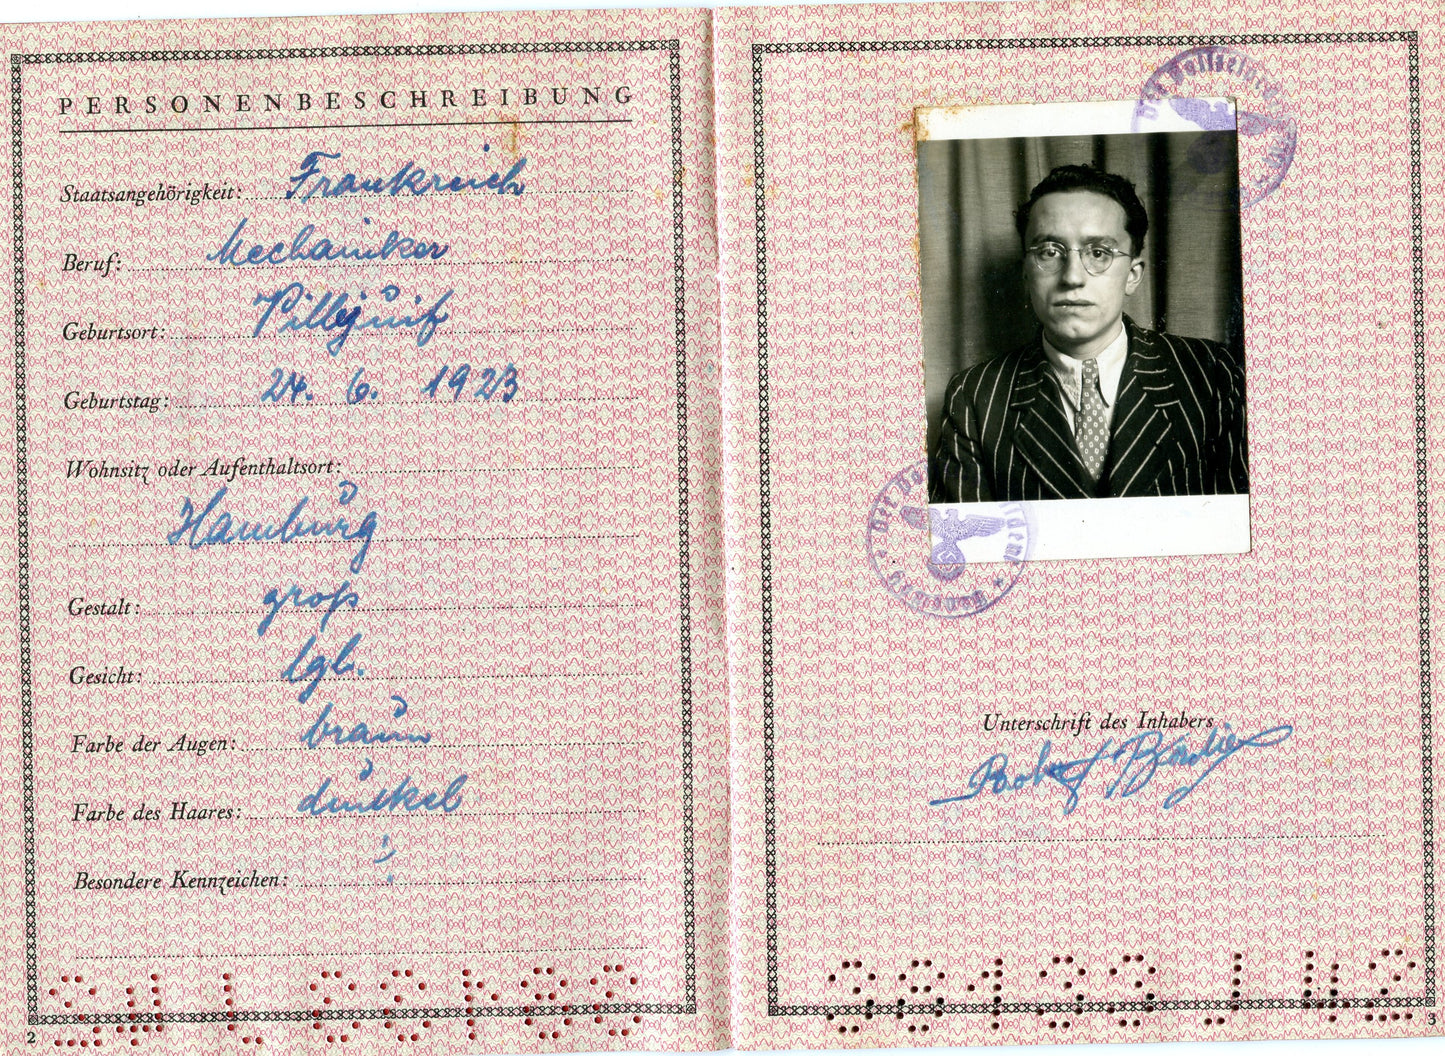 PERSONENBESCHREIBUNG
Staatsangehörigkeit: Frankreich
Beruf: Mechaniker
Geburtsort: Villejuif
Geburtstag: 24. 6. 1923
Wohnsitz oder Aufenthaltsort:
Hamburg
Gestalt: groß
Gesicht: lgl.
Farbe der Augen: braun
Farbe des Haares: dunkel
Besondere Kennzeichen:
2
Der Polizei
Der Pol
Hamburg
Unterschrift des Inhabers
3